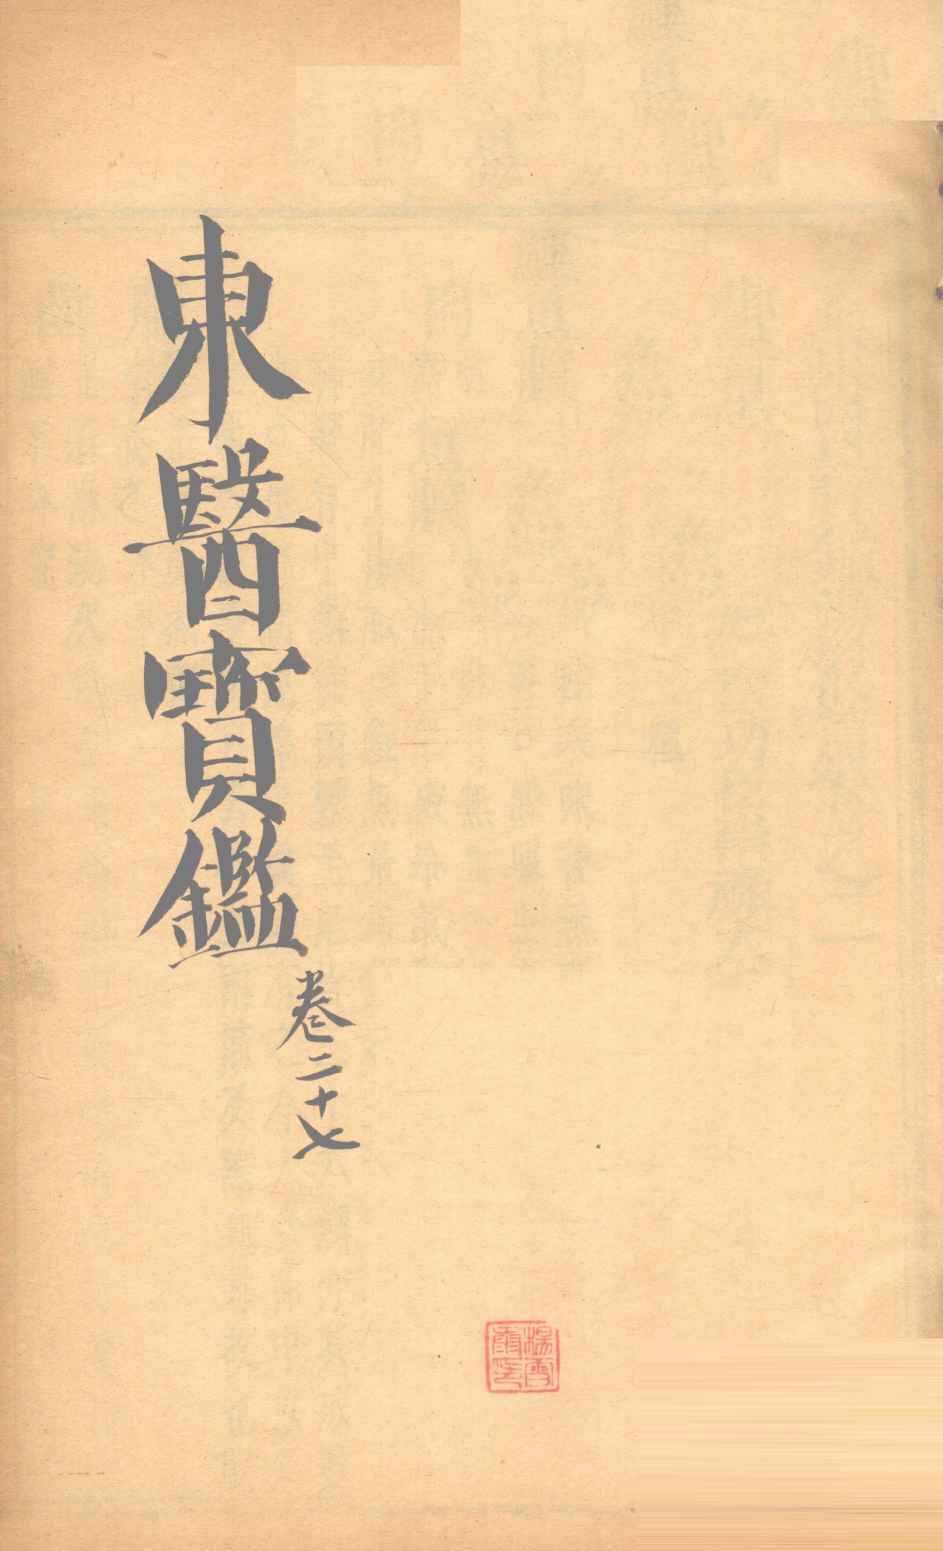 東醫寶鑑
卷二十七